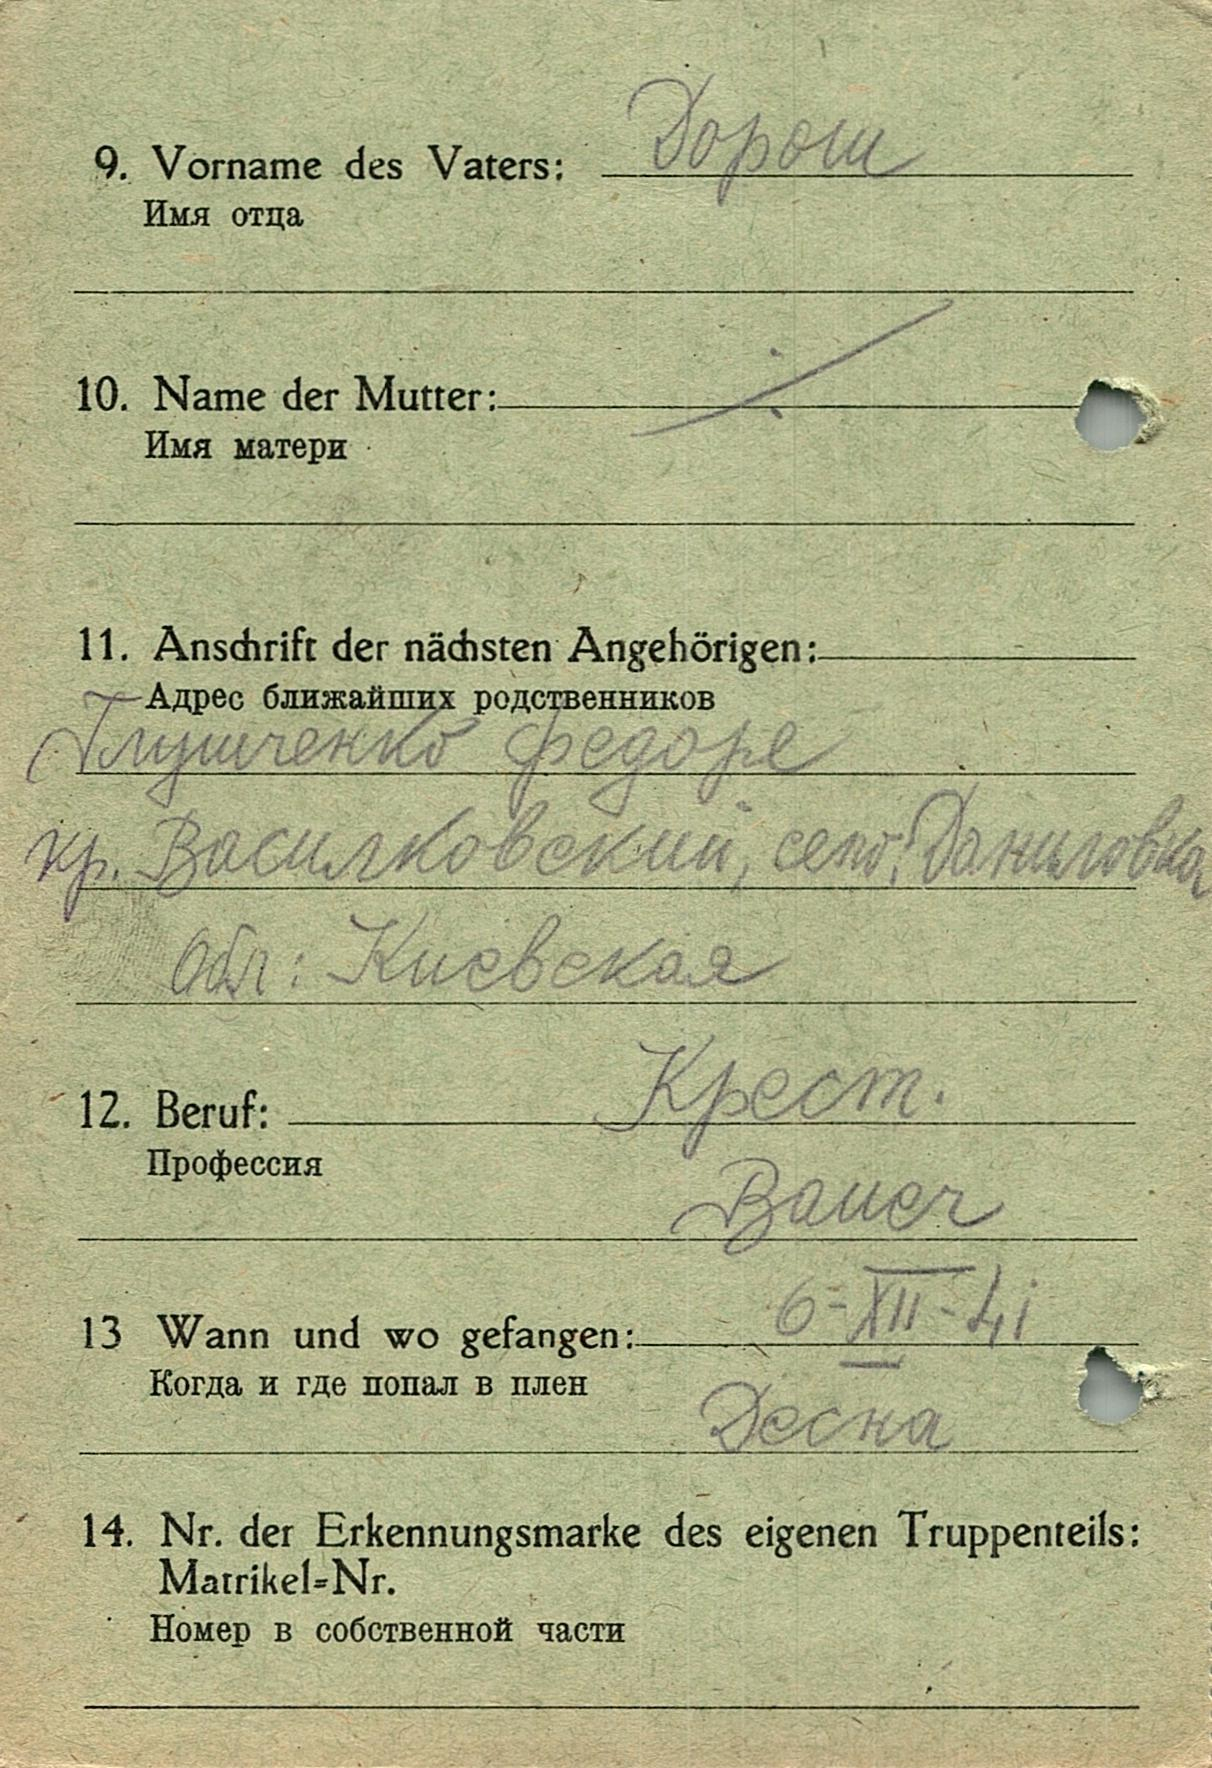 9. Vorname des Vaters: Дорош
Имя отца
10. Name der Mutter:
Имя матери
11. Anschrift der nächsten Angehörigen:
Адрес ближайших родственников
Глушченко Федоре
кр. Василковский, село: Даниловка
Обл: Киевская
12. Beruf: Крест.
Профессия
Bauer
13 Wann und wo gefangen: 6-XII-41
Когда и где попал в плен
Десна
14. Nr. der Erkennungsmarke des eigenen Truppenteils:
Matrikel=Nr.
Номер в собственной части